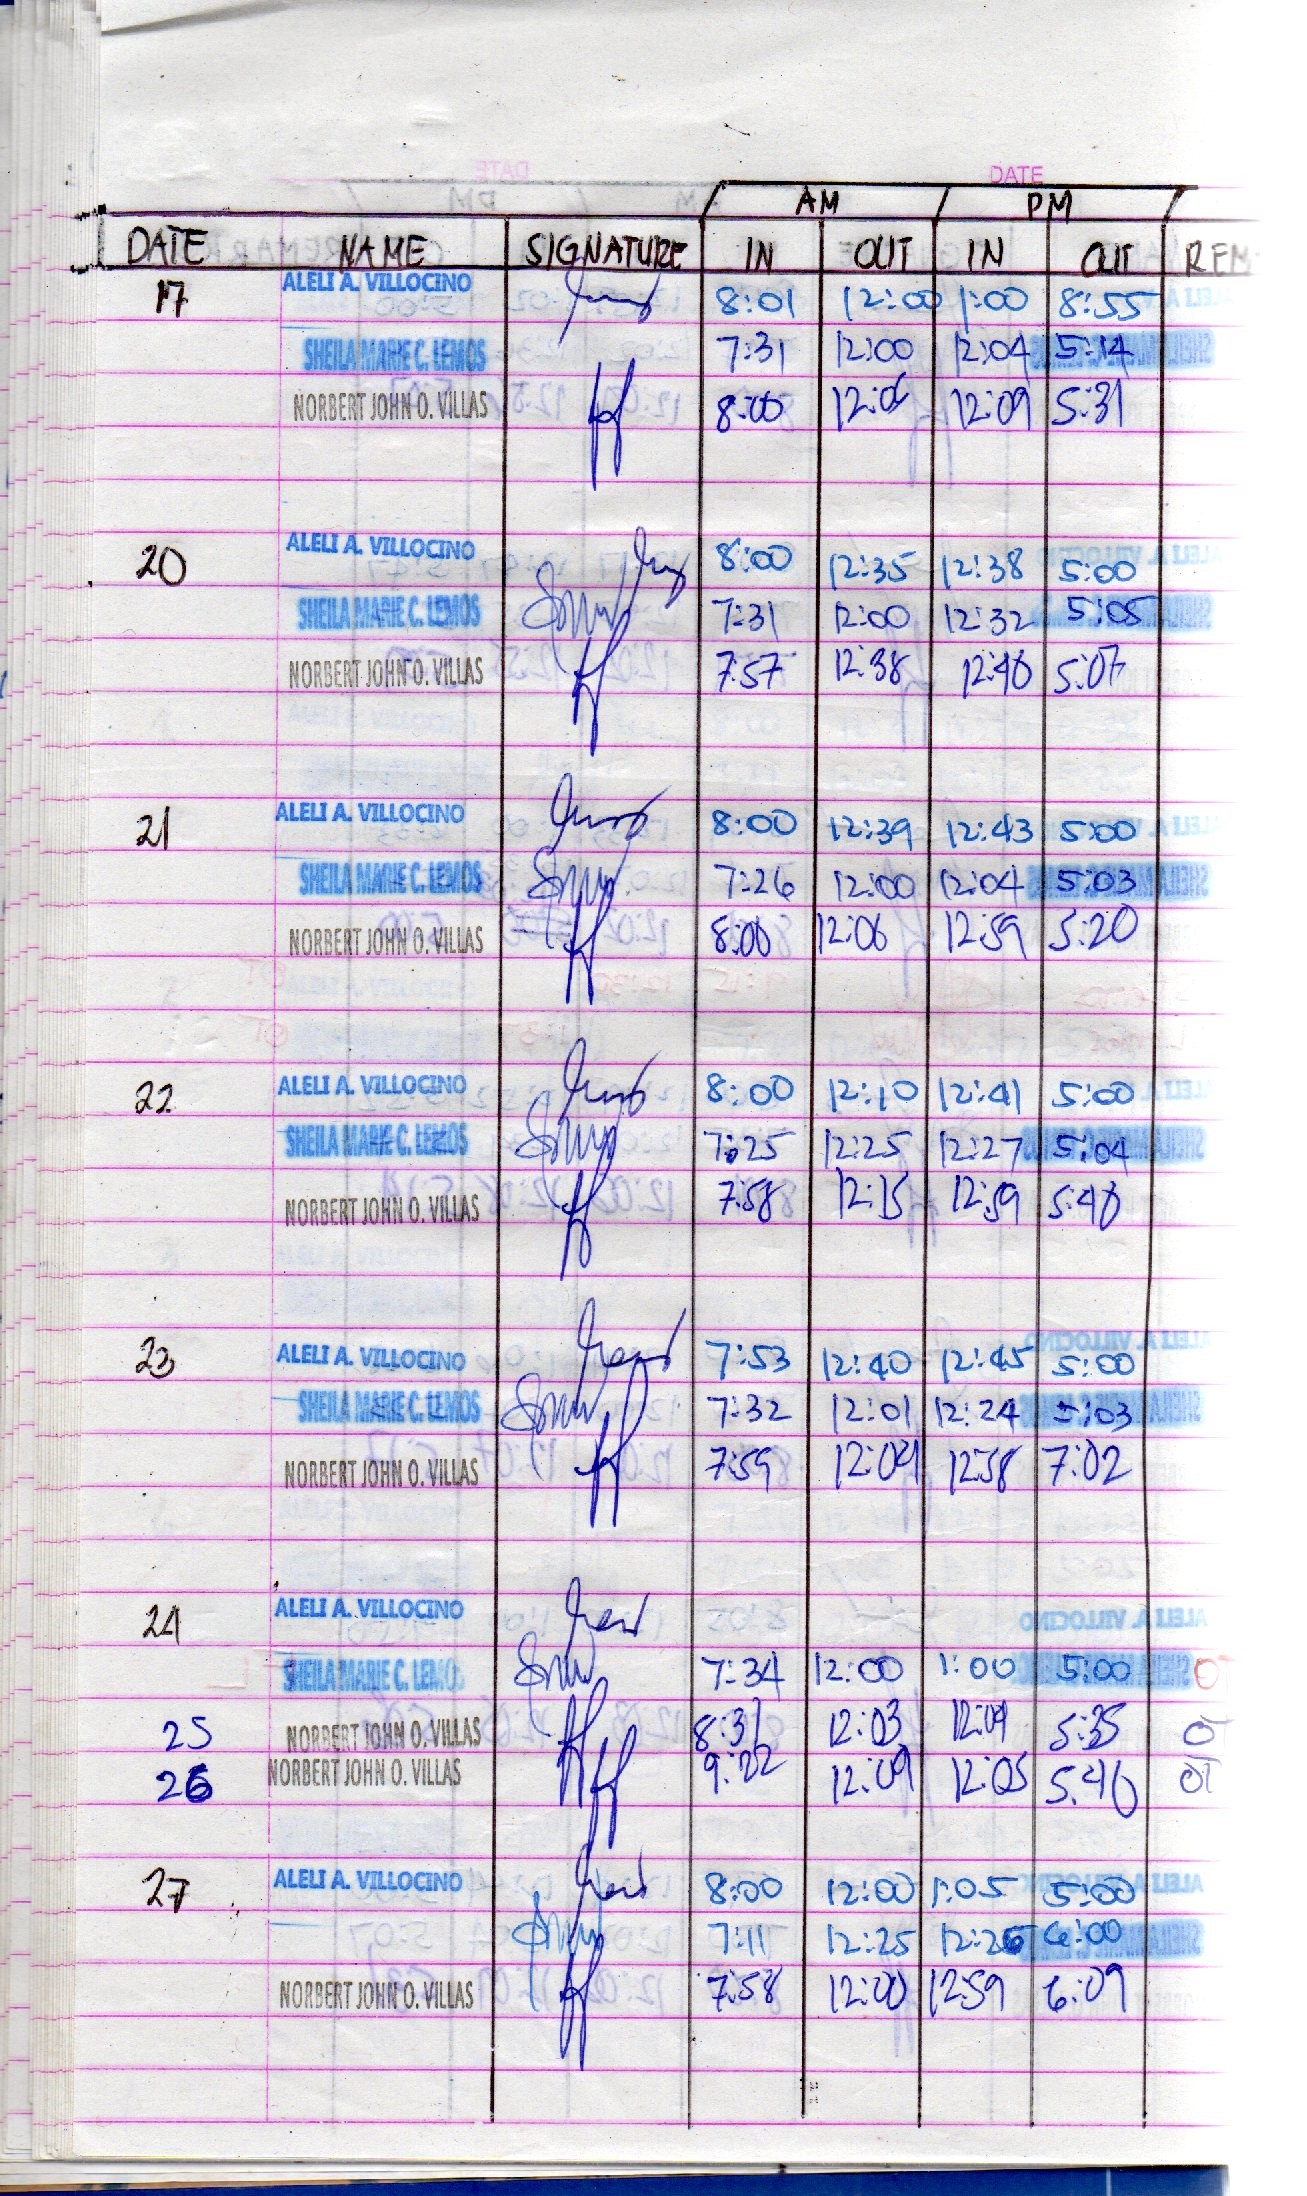 DATE
AM PM
DATE NAME SIGNATURE IN OUT IN OUT REM
17 ALELI A. VILLOCINO 8:01 12:00 1:00 8:55
SHEILA MARIE C. LEMOS 7:31 12:00 12:04 5:14
NORBERT JOHN O. VILLAS 8:00 12:06 12:09 5:31
20 ALELI A. VILLOCINO 8:00 12:35 12:38 5:00
SHEILA MARIE C. LEMOS 7:31 12:00 12:32 5:05
NORBERT JOHN O. VILLAS 7:57 12:38 12:40 5:07
21 ALELI A. VILLOCINO 8:00 12:39 12:43 5:00
SHEILA MARIE C. LEMOS 7:26 12:00 12:04 5:03
NORBERT JOHN O. VILLAS 8:00 12:06 12:59 5:20
22 ALELI A. VILLOCINO 8:00 12:10 12:41 5:00
SHEILA MARIE C. LEMOS 7:25 12:25 12:27 5:04
NORBERT JOHN O. VILLAS 7:58 12:15 12:59 5:40
23 ALELI A. VILLOCINO 7:53 12:40 12:45 5:00
SHEILA MARIE C. LEMOS 7:32 12:01 12:24 5:03
NORBERT JOHN O. VILLAS 7:59 12:04 12:58 7:02
24 ALELI A. VILLOCINO
SHEILA MARIE C. LEMO 7:34 12:00 1:00 5:00 OT
25 NORBERT JOHN O. VILLAS 8:31 12:03 12:04 5:35 OT
26 NORBERT JOHN O. VILLAS 9:22 12:09 12:05 5:40 OT
27 ALELI A. VILLOCINO 8:00 12:00 1:05 5:00
7:11 12:25 12:26 6:00
NORBERT JOHN O. VILLAS 7:58 12:00 12:59 6:09